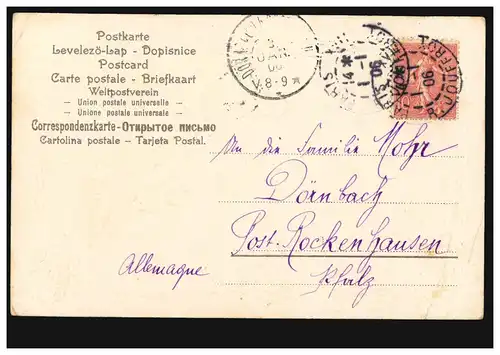 Postkarte
Levelező-Lap - Dopisnice
Postcard
Carte postale - Briefkaart
Weltpostverein
- Union postale universelle -
- Unione postale universale -
Correspondenzkarte-Открытое письмо
Cartolina postale - Tarjeta Postal.
JAN
06
8-9
PARIS
14
1-1
06
06
An die Familie Mohr
Dörnbach
Post. Rockenhausen
Allemaque
Pfalz